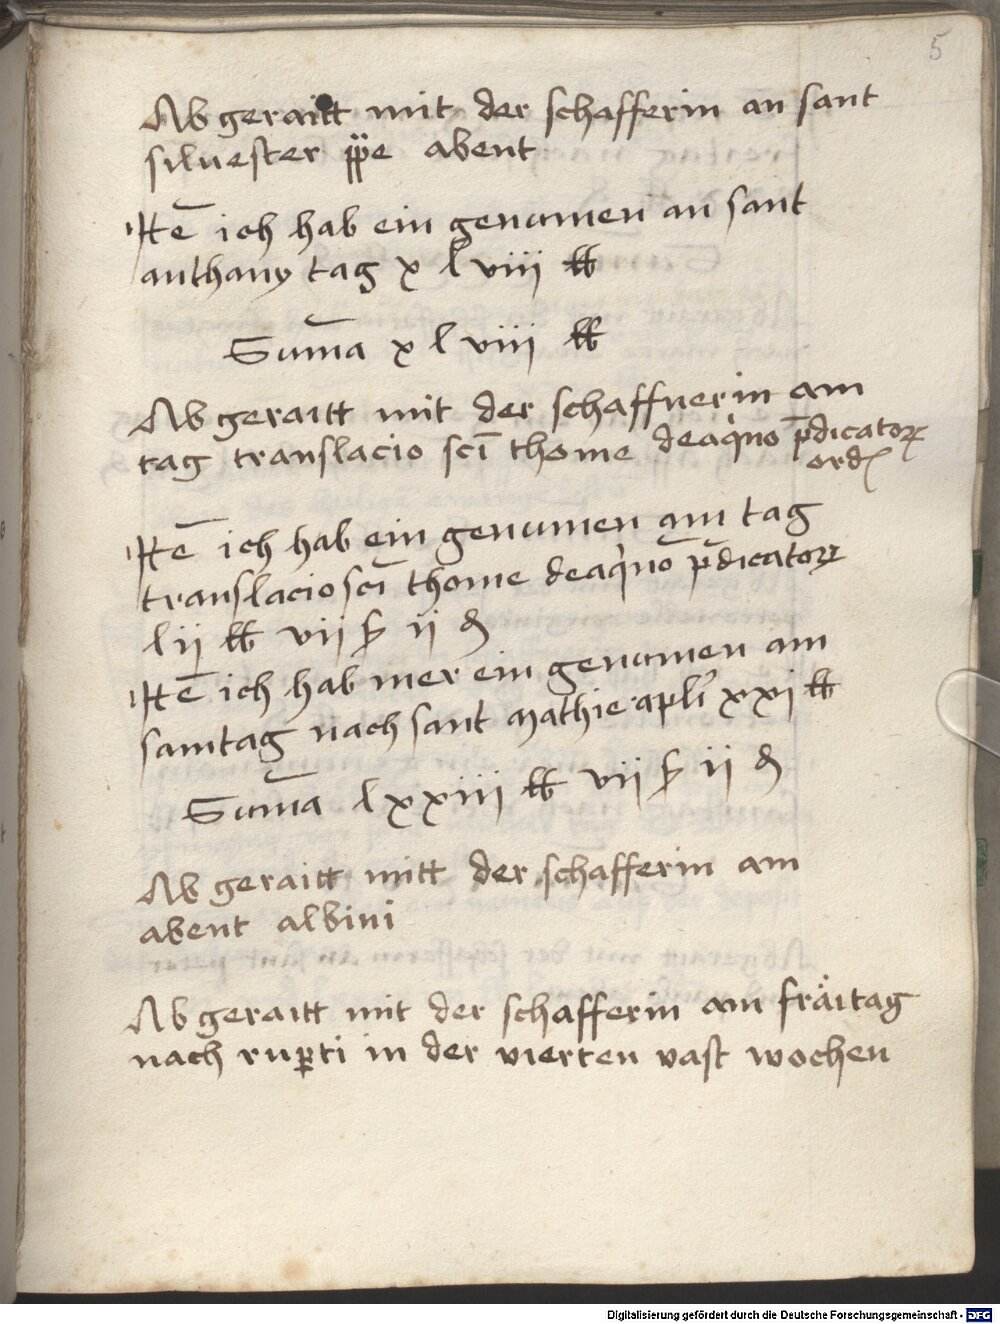 5
Abgeraitt mit der schafferin an sant
siluester ppe abent
Itē ich hab ein genumen an sant
anthany tag xlviii ℔
Sum̄a xlviii ℔
Abgeraitt mit der schaffnerin am
tag translacio scī thome deaq'no p̄dicatoꝝ
ord
Itē ich hab ein genumen am tag
translacio scī thome deaq'no p̄dicatoꝝ
lij ℔ vii ß ij ₰
Itē ich hab mer ein genumen am
samtag nach sant mathie apli xxi ℔
Sum̄a lxxiii ℔ vii ß ii ₰
Abgeraitt mitt der schafferin am
abent albini
Abgeraitt mit der schafferin am fräitag
nach ruꝑti in der vierten vast wochen
Digitalisierung gefördert durch die Deutsche Forschungsgemeinschaft - DFG